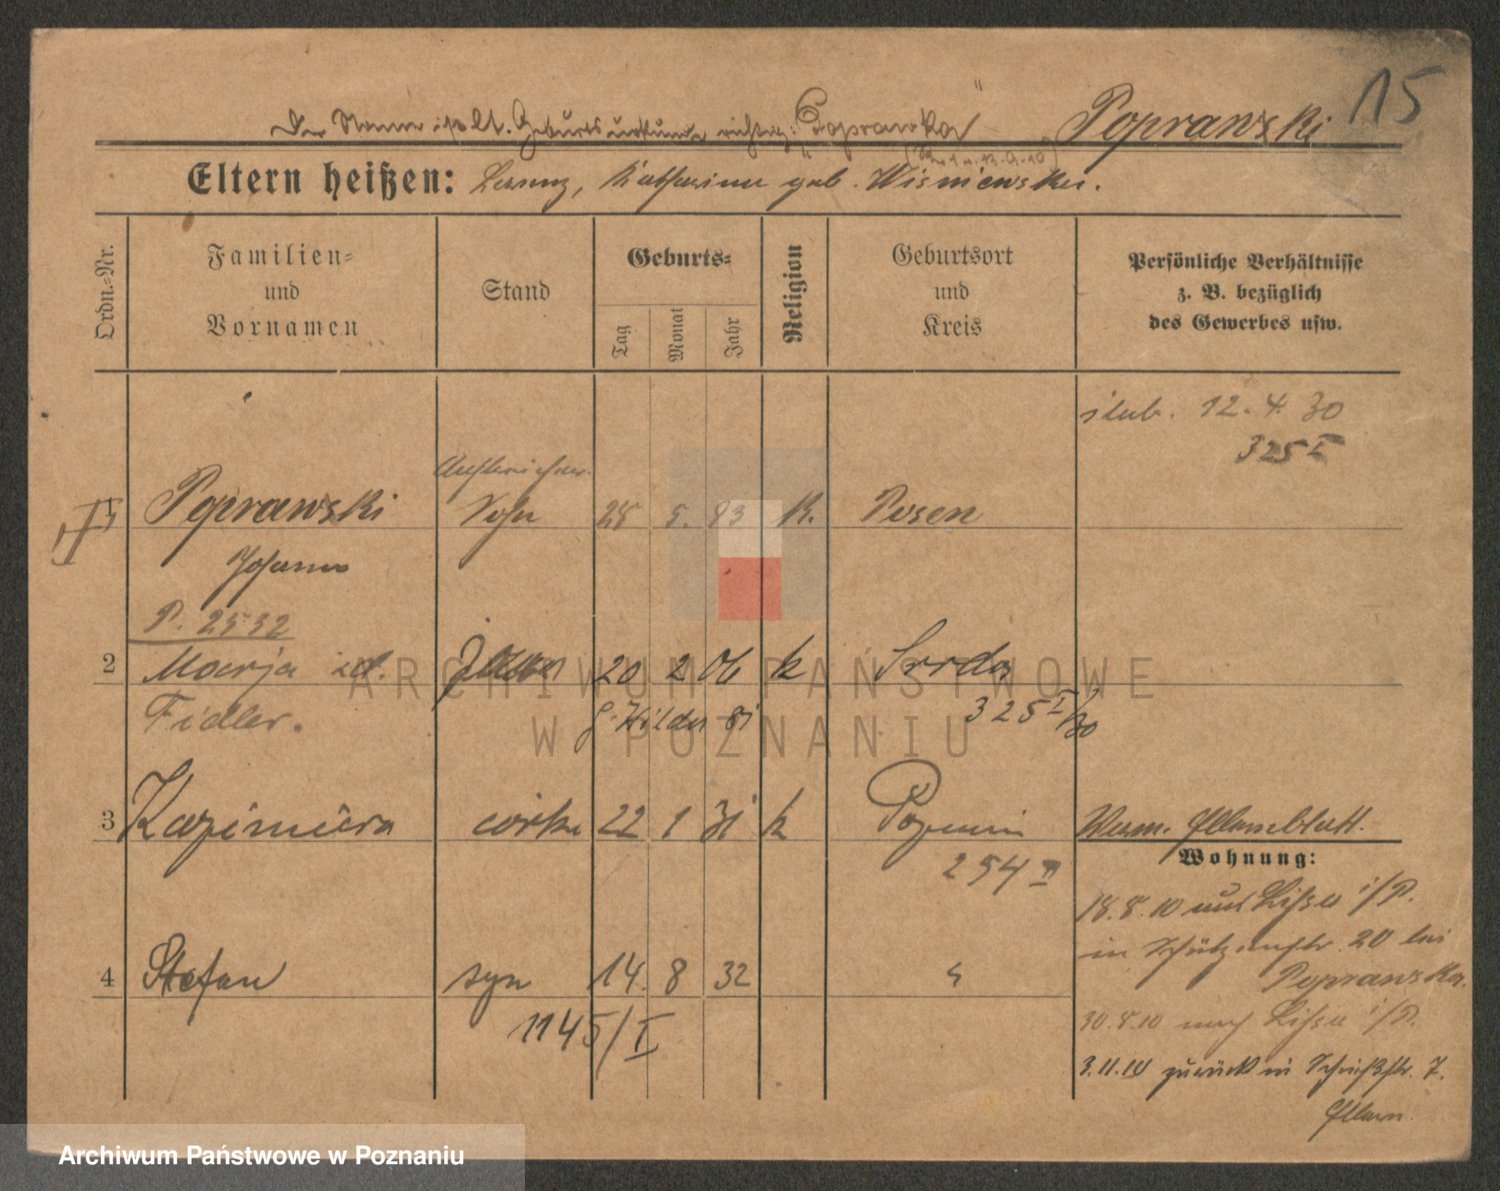 15
Der Name ist lt. Geburtsurkunde richtig: „Poprawka"
Poprawski
Eltern heißen: Lorenz, Katharina geb. Wisniewska.
Ordn.-Nr.
Familien-
und
Vornamen
Stand
Geburts-
Tag
Monat
Jahr
Religion
Geburtsort
und
Kreis
Persönliche Verhältnisse
z. B. bezüglich
des Gewerbes usw.
ślub. 12.4.30
325 I
1
Poprawski
Sohn
28 5. 93 K. Posen
Johann
P. 2532
2
Marja
żona
20 2 06 k Środa
Fidler.
325 I/30
3
Kazimiera
córka
22 1 31 k
254 II
Elternblatt.
Wohnung:
18.8.10 aus Lissa i/P.
in Schützenstr. 20 bei
Poprawska.
30.8.10 nach Lissa i/P.
4
Stefan
syn
14. 8 32
1145/I
3.11.10 zurück in 7.
Eltern.
ARCHIWUM PAŃSTWOWE
W POZNANIU
Archiwum Państwowe w Poznaniu